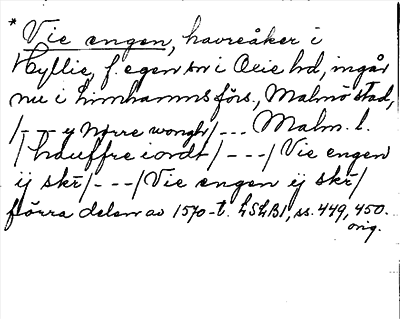 * Vie engen, havreåker i
Hyllie, f. egen sn i Oxie hd, ingår
nu i Limhamns förs., Malmö stad,
/--- y Nørre wongh/ --- Malm. l.
/ hauffre iordt / --- / Vie engen
ij skr̄ / --- / Vie engen ij skr̄ /
förra delen av 1570-t. LSLB1, ss. 449, 450.
orig.